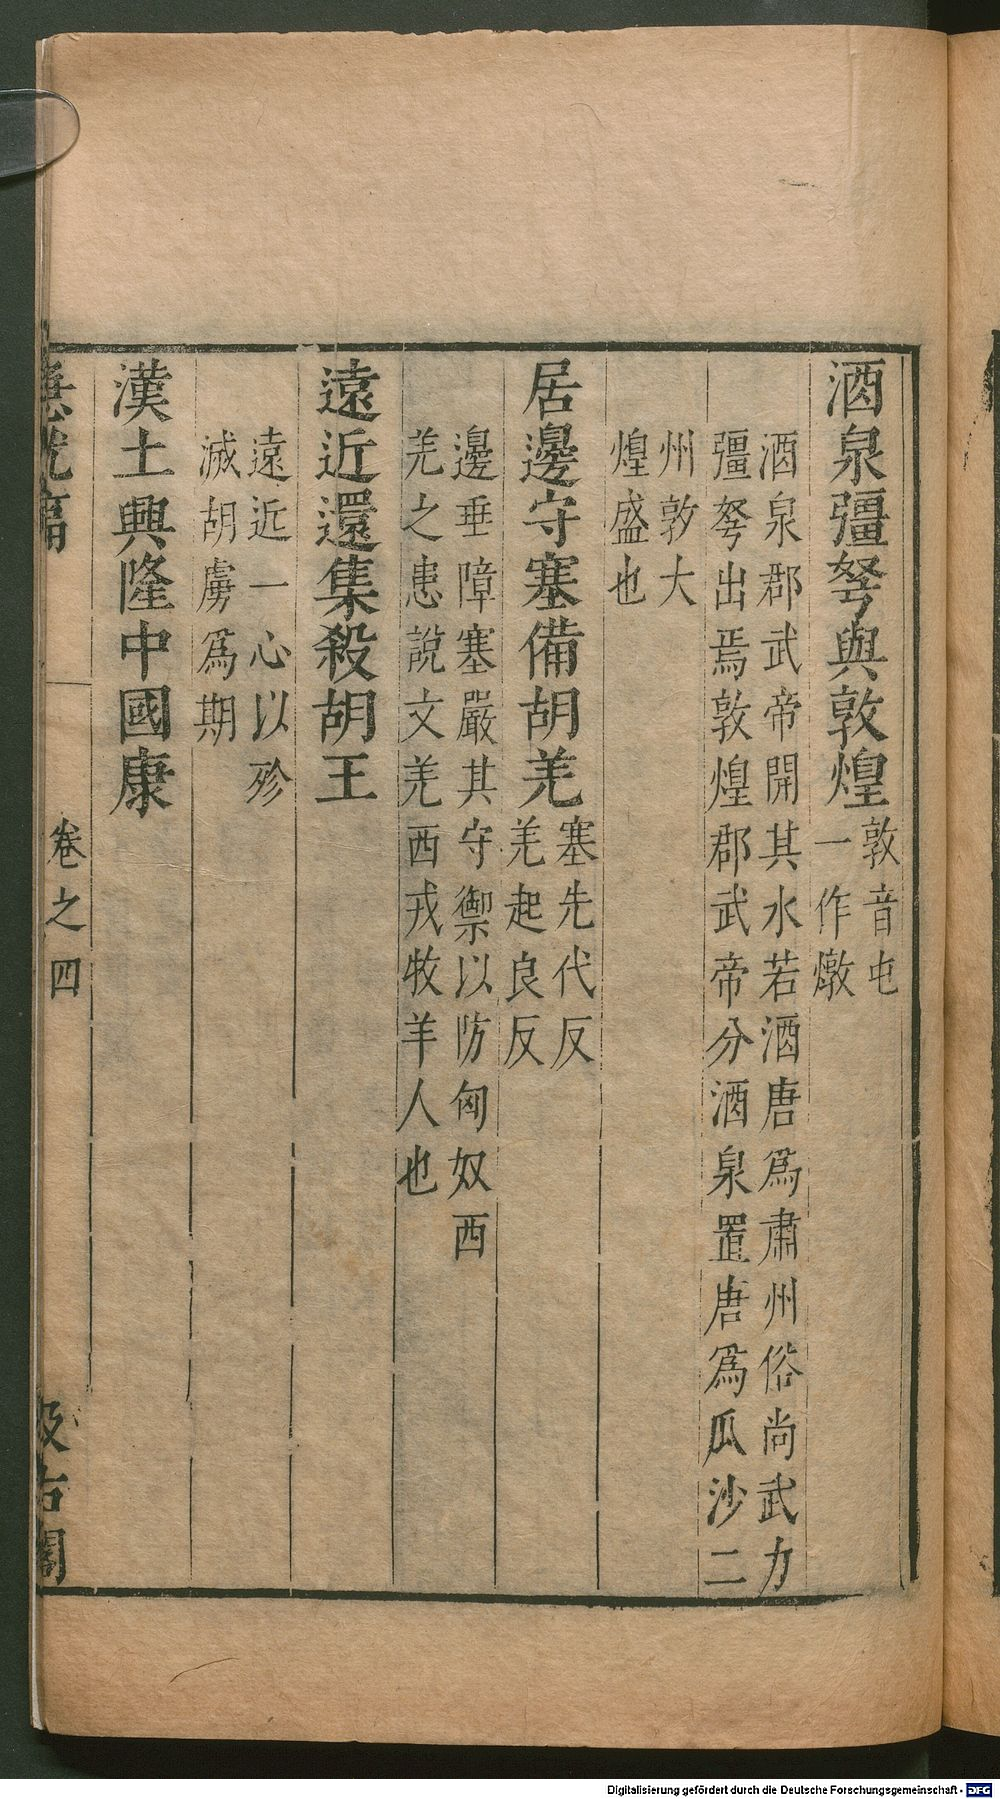 酒泉彊弩與敦煌
敦音屯
一作燉
酒泉郡武帝開其水若酒唐爲肅州俗尚武力
彊弩出焉敦煌郡武帝分酒泉置唐爲瓜沙二
州敦大
煌盛也
居邊守塞備胡羌
塞先代反
羌起良反
邊垂障塞嚴其守禦以防匈奴西
羌之患說文羌西戎牧羊人也
遠近還集殺胡王
遠近一心以殄
滅胡虜爲期
漢土興隆中國康
急就篇
卷之四
汲古閣
Digitalisierung gefördert durch die Deutsche Forschungsgemeinschaft - DFG